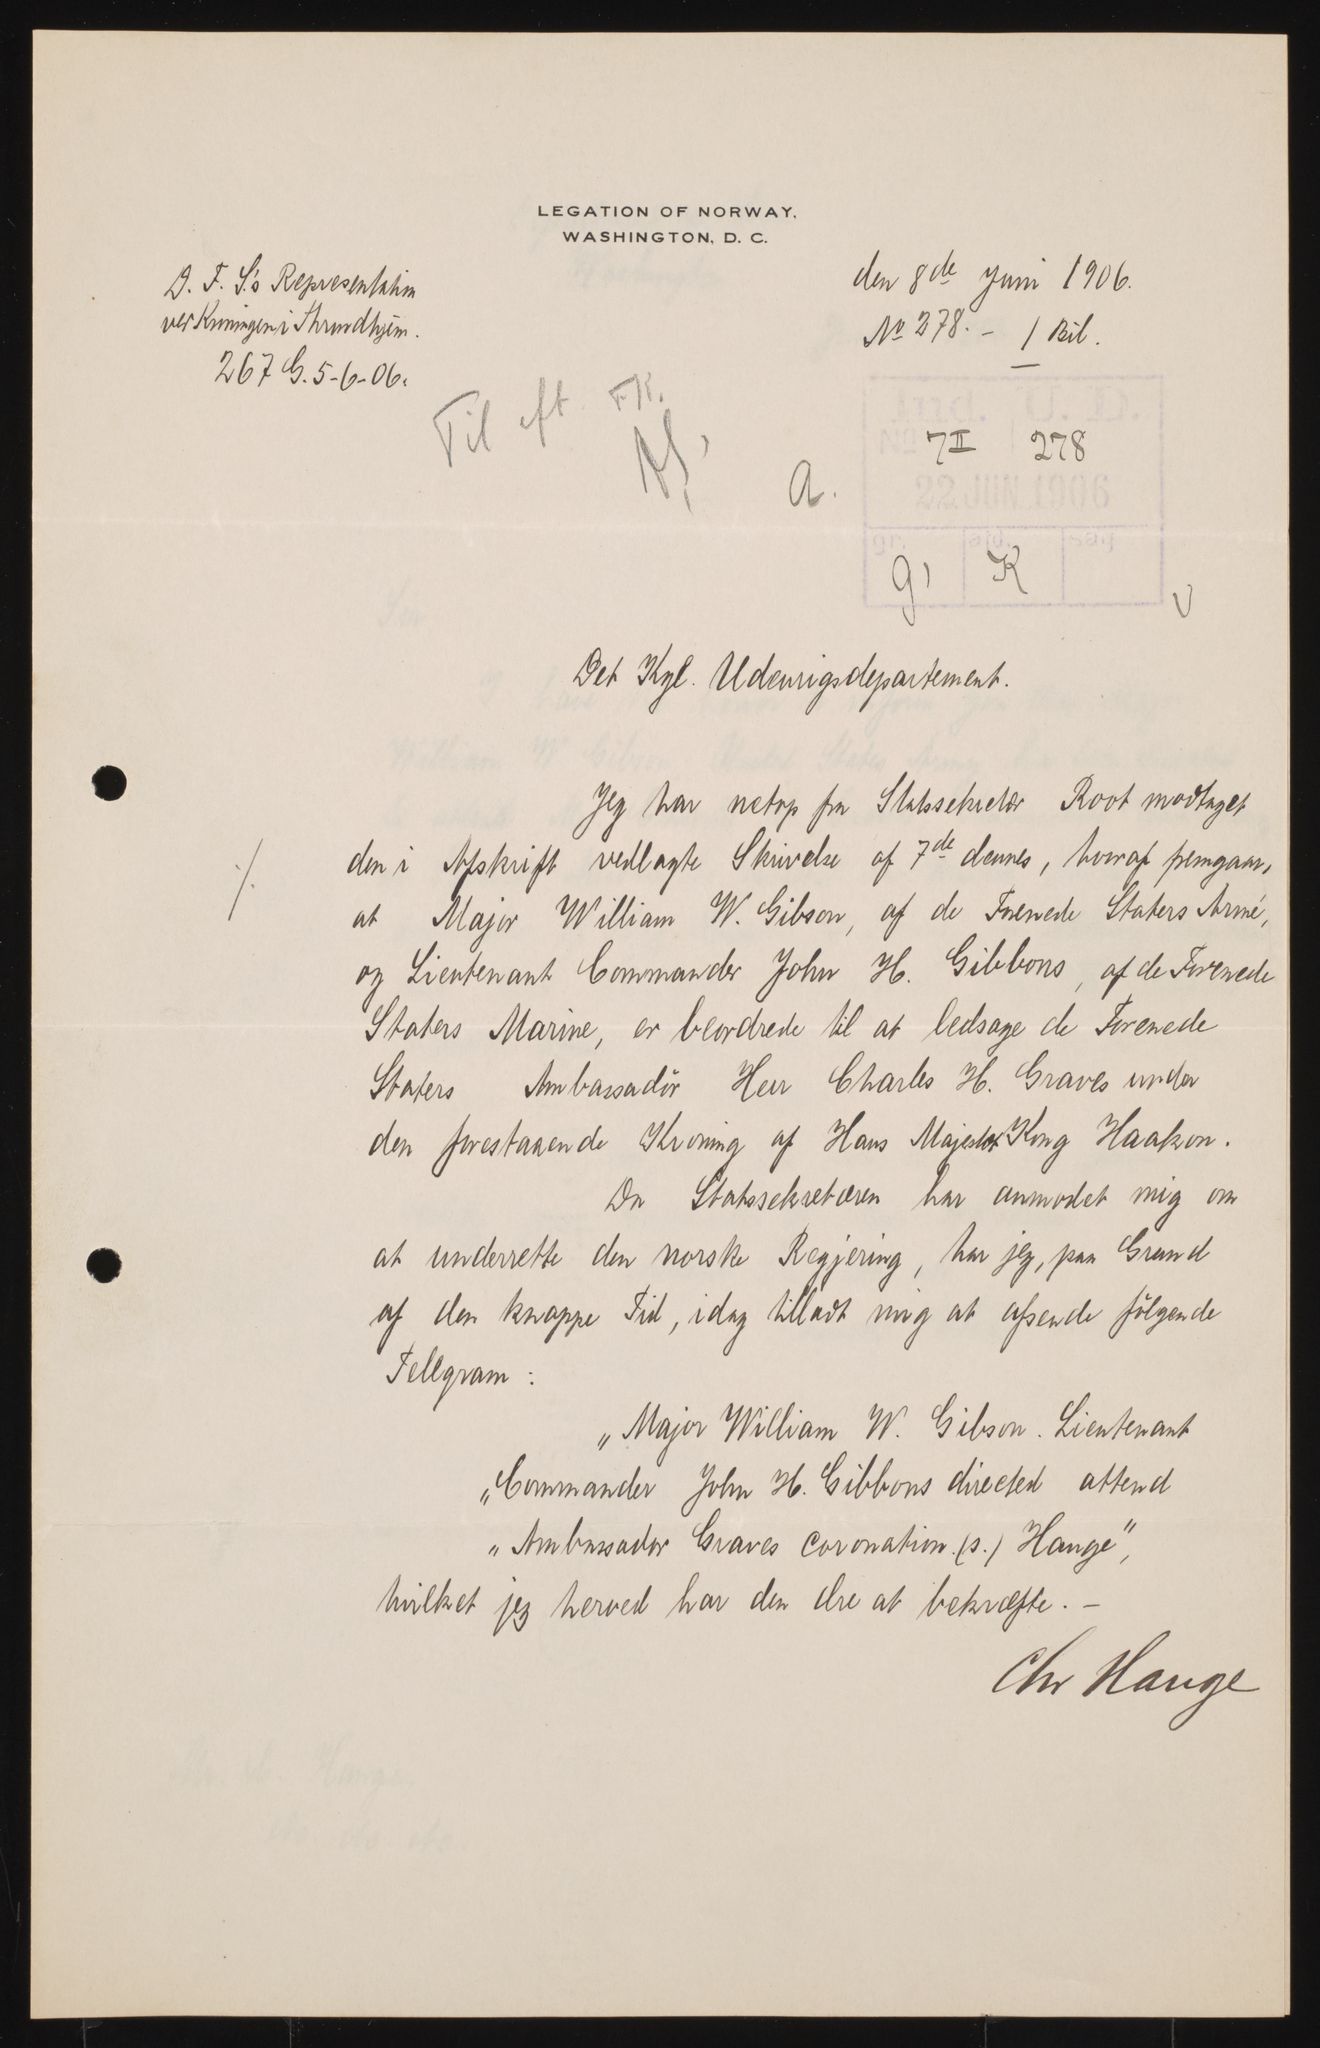 LEGATION OF NORWAY.
WASHINGTON, D. C.
D. F. S's Representation
ved Kroningen i Throndhjem.
267 G. 5-6-06.
den 8de Juni 1906.
No 278. - 1 Bil.
Til eft. FK.
7II 278
22 JUN 1906
a.
g, K
Det Kgl. Udenrigsdepartement.
Jeg har netop fra Statssekretær Root modtaget
./. den i Afskrift vedlagte Skrivelse af 7de dennes, hvoraf fremgaar,
at Major William W. Gibson, af de Forenede Staters Armé,
og Lieutenant Commander John H. Gibbons, af de Forenede
Staters Marine, er beordrede til at ledsage de Forenede
Staters Ambassadør Herr Charles H. Graves under
den forestaaende Kroning af Hans Majestæt Kong Haakon.
Da Statssekretæren har anmodet mig om
at underrette den norske Regjering, har jeg, paa Grund
af den knappe Tid, idag tilladt mig at afsende følgende
Tellgram:
„Major William W. Gibson. Lieutenant
„Commander John H. Gibbons directed attend
„Ambassador Graves coronation. (s.) Hauge",
hvilket jeg herved har den Ære at bekræfte. -
Chr Hauge